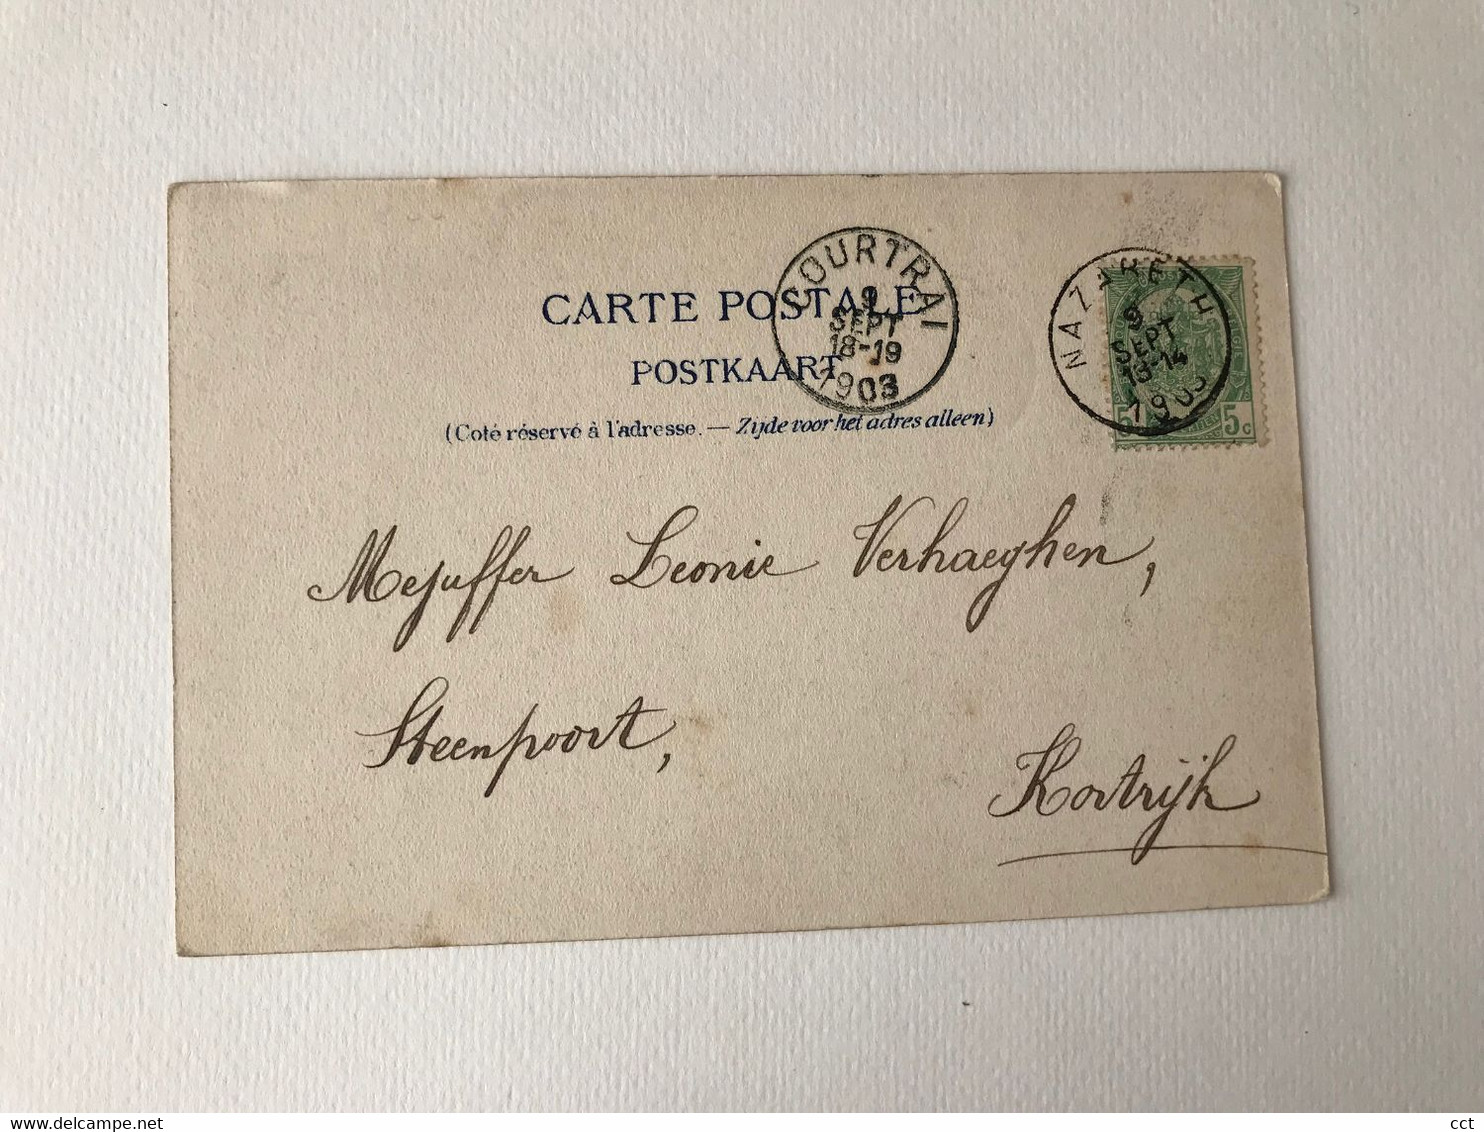 COURTRAI
9
SEPT
18-19
1903
NAZARETH
9
SEPT
13-14
1903
5 5c
CARTE POSTALE
POSTKAART
(Coté réservé à l'adresse. — Zijde voor het adres alleen)
Mejuffer Leonie Verhaeghen,
Steenpoort,
Kortrijk
www.delcampe.net
cct